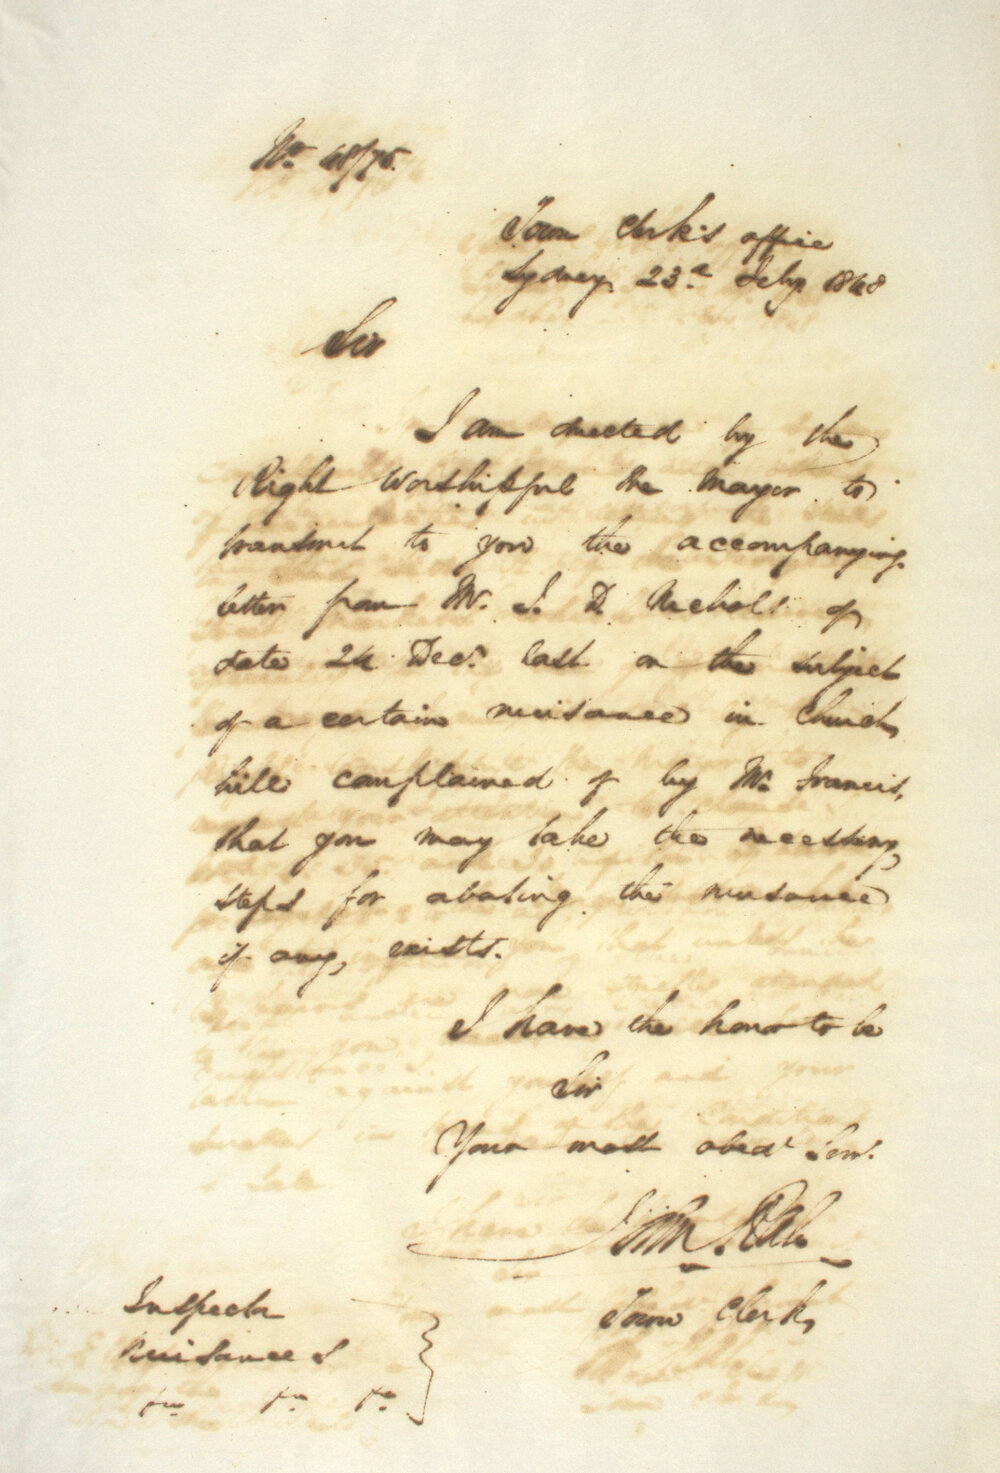 No. 48/75.
Town Clerk's office
Sydney 23d. Feby. 1848
Sir
I am directed by the
Right Worshipful the Mayor to
transmit to you the accompanying
letter from Mr. J. D. Nichols of
date 24 Decr. last on the subject
of a certain nuisance in Church
hill complained of by Mr. Francis,
that you may take the necessary
steps for abating the nuisance
if any, exists.
I have the honor to be
Sir
Your most obedt. Servt.
John Rae
Town Clerk
Inspector
Nuisances